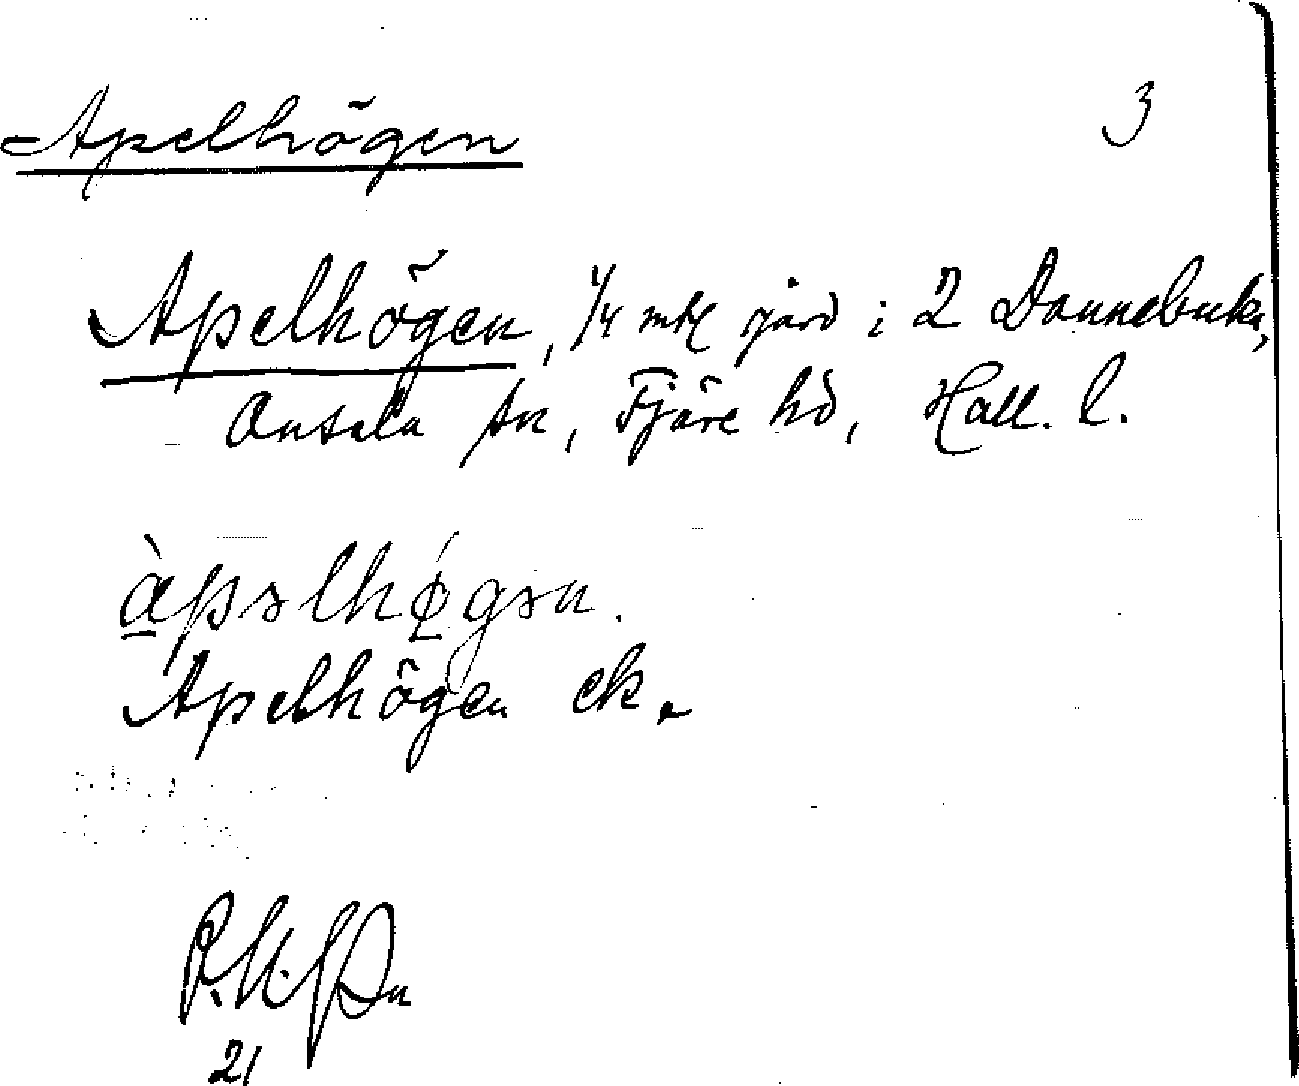 Apelhögen 3
Apelhögen, 1/4 mtl gård i 2 Dannebuka,
Onsala sn, Fjäre hd, Hall. l.
àpəlhǿ̨gən.
Apelhögen ek.
21